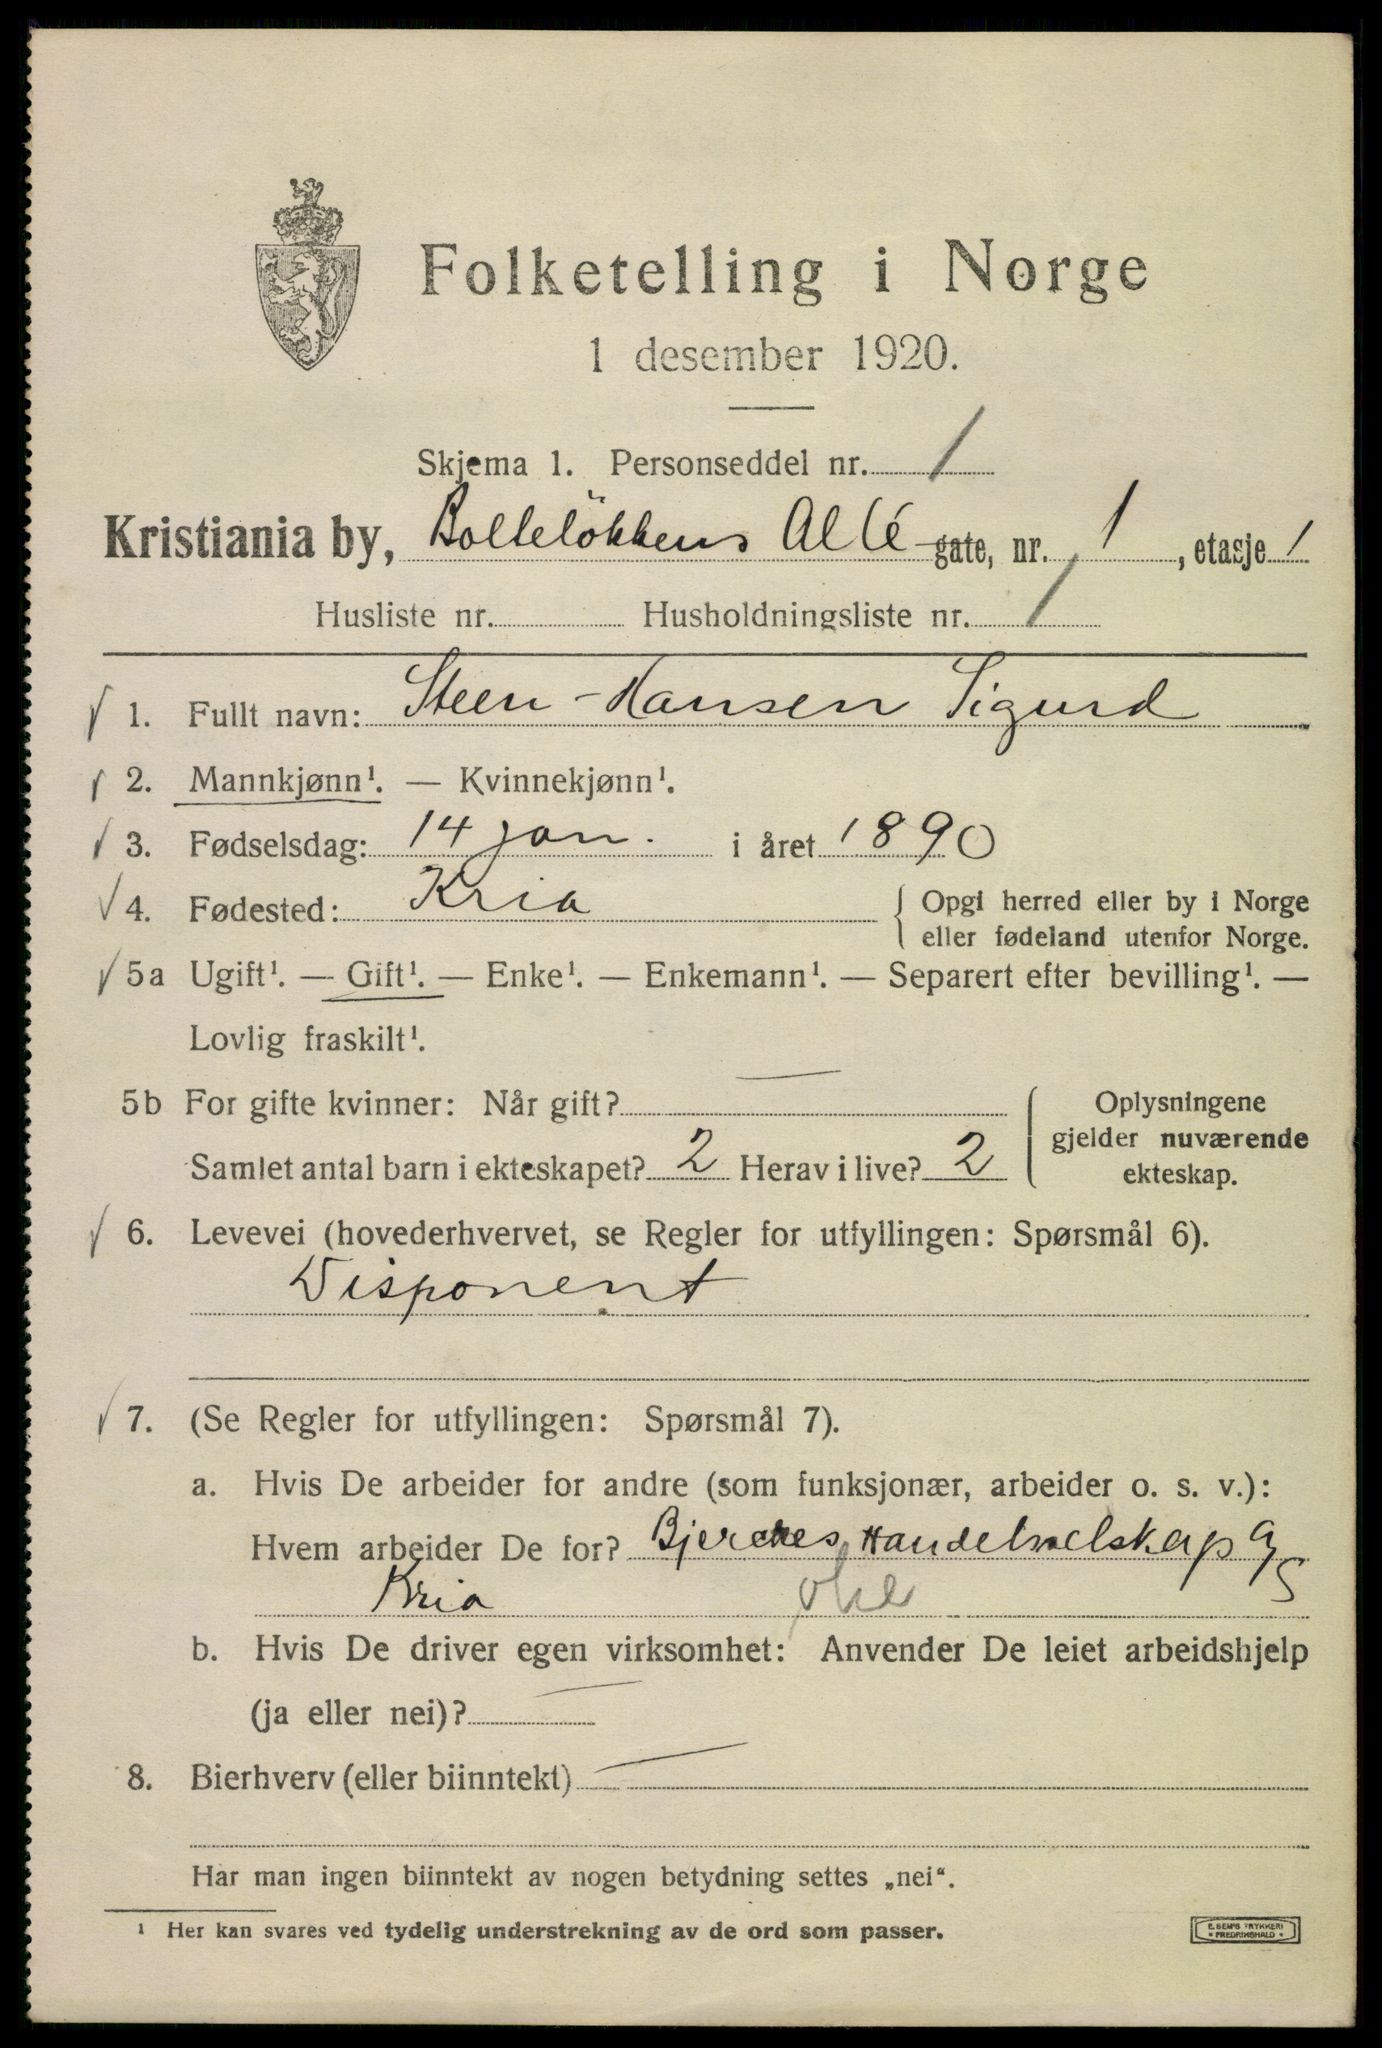 Folketelling i Norge
1 desember 1920.
Skjema 1. Personseddel nr. 1
Kristiania by, Bolteløkkens Allé gate, nr. 1, etasje 1
Husliste nr. Husholdningsliste nr. 1
1. Fullt navn: Steen-Hansen Sigurd
2. Mannkjønn¹. — Kvinnekjønn¹.
3. Fødselsdag: 14 jan. i året 1890
4. Fødested: Kria { Opgi herred eller by i Norge
eller fødeland utenfor Norge.
5a Ugift¹. — Gift¹. — Enke¹. — Enkemann¹. — Separert efter bevilling¹. —
Lovlig fraskilt¹.
5b For gifte kvinner: Når gift? —
Samlet antal barn i ekteskapet? 2 Herav i live? 2
Oplysningene
gjelder nuværende
ekteskap.
6. Levevei (hovederhvervet, se Regler for utfyllingen: Spørsmål 6).
Disponent
7. (Se Regler for utfyllingen: Spørsmål 7).
a. Hvis De arbeider for andre (som funksjonær, arbeider o. s. v.):
Hvem arbeider De for? Handelsselskap A/S
Kria
b. Hvis De driver egen virksomhet: Anvender De leiet arbeidshjelp
(ja eller nei)? —
8. Bierhverv (eller biinntekt) —
Har man ingen biinntekt av nogen betydning settes „nei“.
¹ Her kan svares ved tydelig understrekning av de ord som passer.
E. SEM'S TRYKKERI
* FREDRIKSHALD *